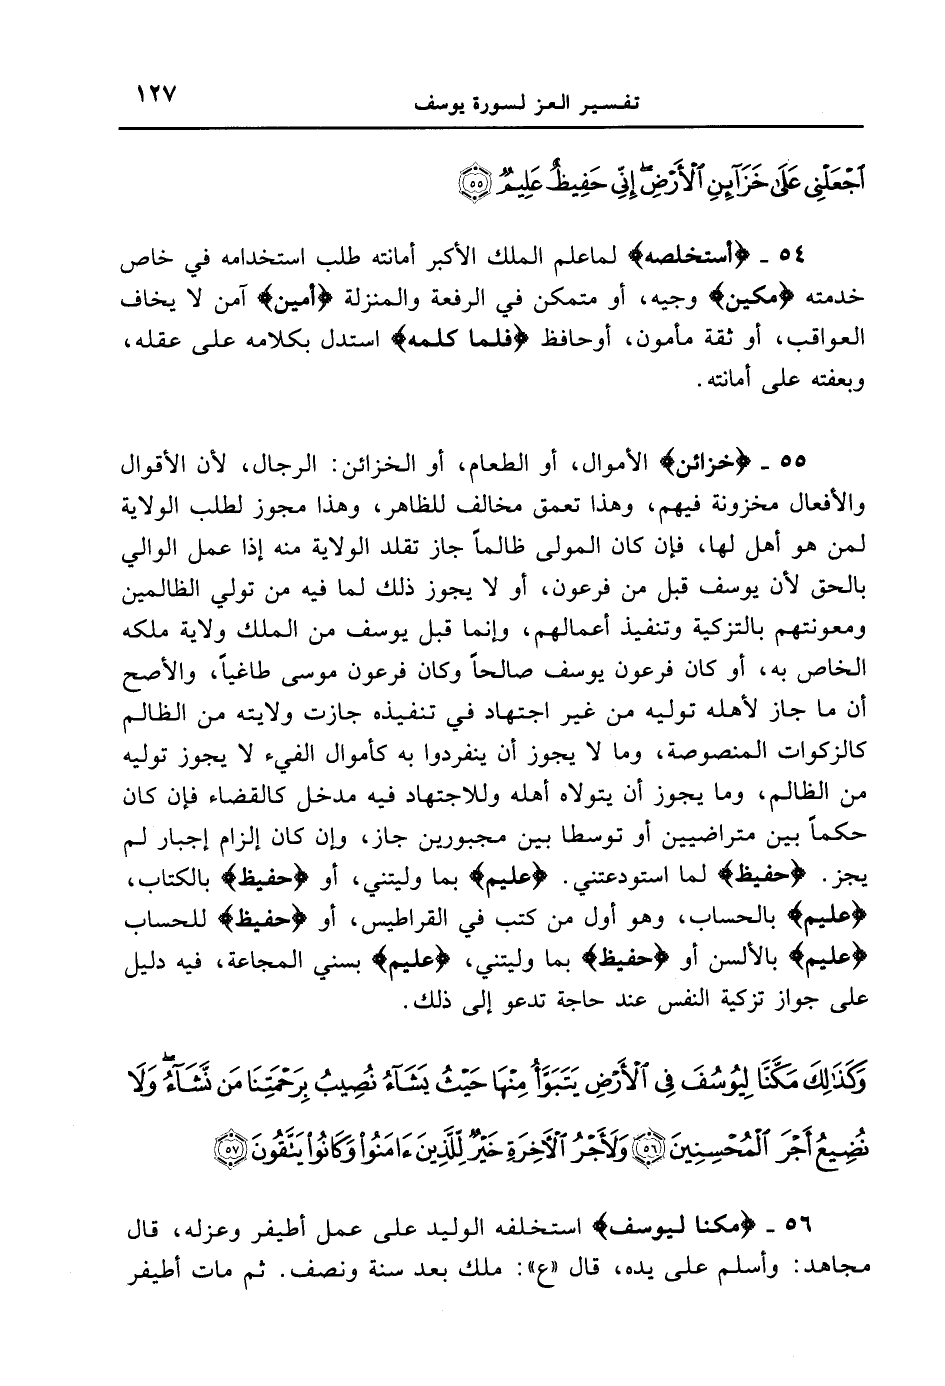 تفسير العز لسورة يوسف ١٢٧
ٱجْعَلْنِى عَلَىٰ خَزَآئِنِ ٱلْأَرْضِ ۖ إِنِّى حَفِيظٌ عَلِيمٌ ۝٥٥
٥٤ ـ ﴿أستخلصه﴾ لماعلم الملك الأكبر أمانته طلب استخدامه في خاص
خدمته ﴿مكين﴾ وجيه، أو متمكن في الرفعة والمنزلة ﴿أمين﴾ آمن لا يخاف
العواقب، أو ثقة مأمون، أوحافظ ﴿فلما كلمه﴾ استدل بكلامه على عقله،
وبعفته على أمانته.
٥٥ ـ ﴿خزائن﴾ الأموال، أو الطعام، أو الخزائن: الرجال، لأن الأقوال
والأفعال مخزونة فيهم، وهذا تعمق مخالف للظاهر، وهذا مجوز لطلب الولاية
لمن هو أهل لها، فإن كان المولى ظالماً جاز تقلد الولاية منه إذا عمل الوالي
بالحق لأن يوسف قبل من فرعون، أو لا يجوز ذلك لما فيه من تولي الظالمين
ومعونتهم بالتزكية وتنفيذ أعمالهم، وإنما قبل يوسف من الملك ولاية ملكه
الخاص به، أو كان فرعون يوسف صالحاً وكان فرعون موسى طاغياً، والأصح
أن ما جاز لأهله توليه من غير اجتهاد في تنفيذه جازت ولايته من الظالم
كالزكوات المنصوصة، وما لا يجوز أن ينفردوا به كأموال الفيء لا يجوز توليه
من الظالم، وما يجوز أن يتولاه أهله وللاجتهاد فيه مدخل كالقضاء فإن كان
حكماً بين متراضيين أو توسطا بين مجبورين جاز، وإن كان إلزام إجبار لم
يجز. ﴿حفيظ﴾ لما استودعتني. ﴿عليم﴾ بما وليتني، أو ﴿حفيظ﴾ بالكتاب،
﴿عليم﴾ بالحساب، وهو أول من كتب في القراطيس، أو ﴿حفيظ﴾ للحساب
﴿عليم﴾ بالألسن أو ﴿حفيظ﴾ بما وليتني، ﴿عليم﴾ بسني المجاعة، فيه دليل
على جواز تزكية النفس عند حاجة تدعو إلى ذلك.
وَكَذَٰلِكَ مَكَّنَّا لِيُوسُفَ فِى ٱلْأَرْضِ يَتَبَوَّأُ مِنْهَا حَيْثُ يَشَآءُ ۚ نُصِيبُ بِرَحْمَتِنَا مَن نَّشَآءُ ۖ وَلَا
نُضِيعُ أَجْرَ ٱلْمُحْسِنِينَ ۝٥٦ وَلَأَجْرُ ٱلْآخِرَةِ خَيْرٌ لِّلَّذِينَ ءَامَنُوا۟ وَكَانُوا۟ يَتَّقُونَ ۝٥٧
٥٦ ـ ﴿مكنا ليوسف﴾ استخلفه الوليد على عمل أطيفر وعزله، قال
مجاهد: وأسلم على يده، قال «ع»: ملك بعد سنة ونصف. ثم مات أطيفر